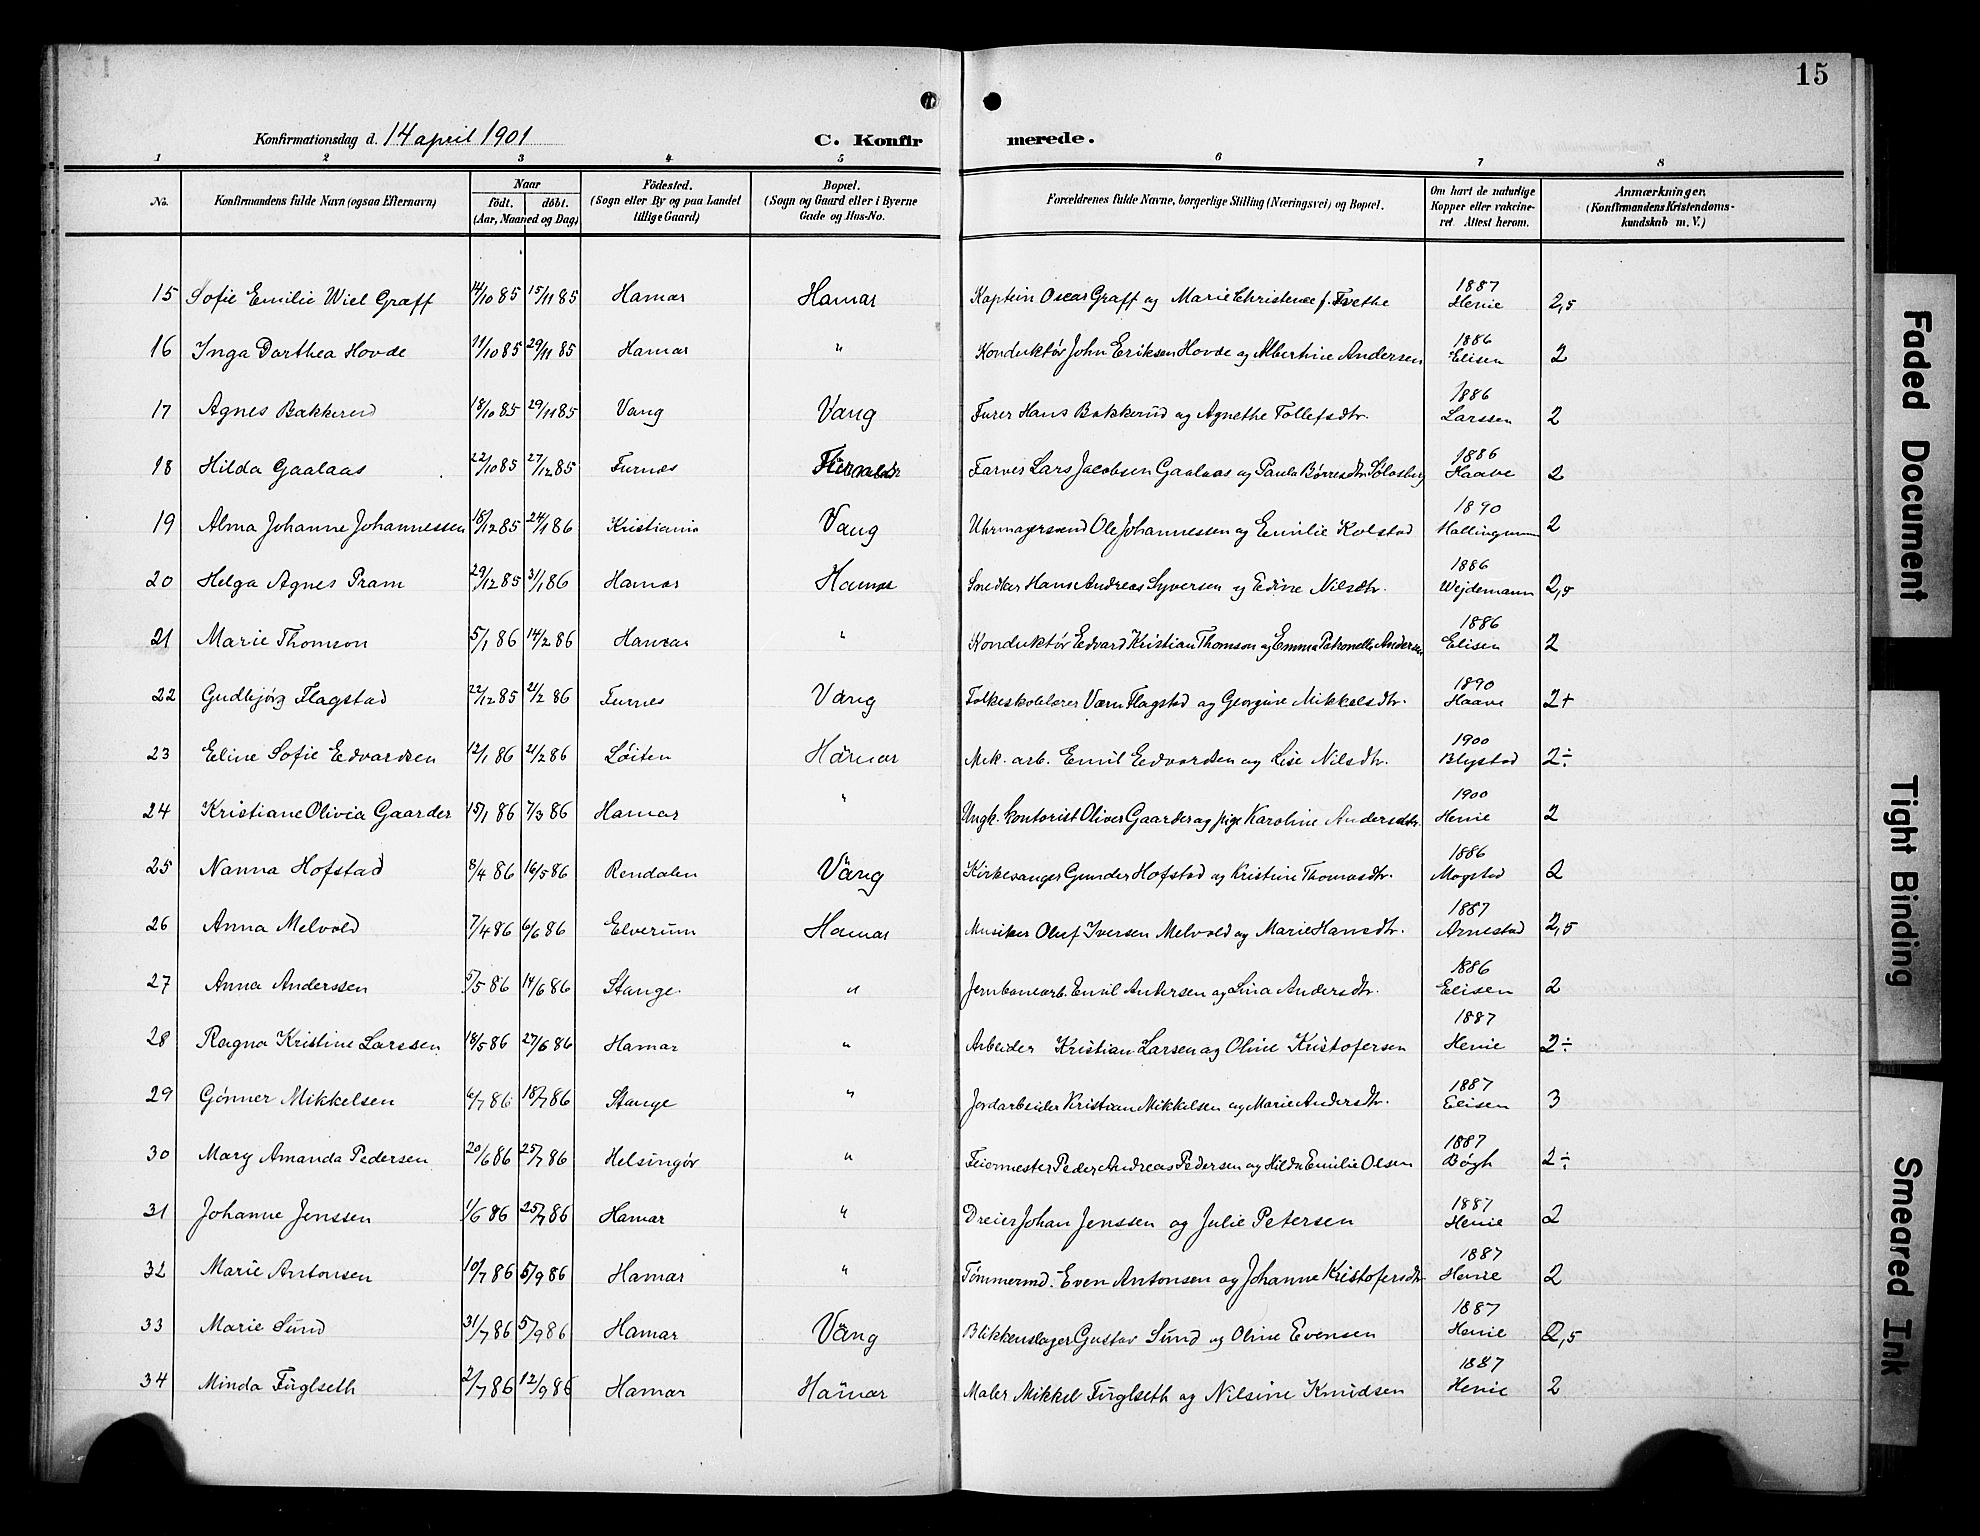 15
Konfirmationsdag d. 14 april 1901 C. Konfirmerede.
1 2 3 4 5 6 7 8
No. Konfirmandens fulde Navn (ogsaa Efternavn) Naar födt. döbt. (Aar, Maaned og Dag) Födested. (Sogn eller By og paa Landet tillige Gaard) Bopæl. (Sogn og Gaard eller i Byerne Gade og Hus-No. Forældrenes fulde Navne, borgerlige Stilling (Næringsvei) og Bopæl. Om havt de naturlige Kopper eller vakcineret Attest herom. Anmærkninger. (Konfirmandens Kristendomskundskab m. V.)
15 Sofie Emilie Wiel Graff 14/10 85 15/11 85 Hamar Hamar Kaptein Oscar Graff og Marie Christence f. Tvethe 1887 Henie 2,5
16 Inga Dorthea Hovde 11/10 85 29/11 85 Hamar " Konduktør John Eriksen Hovde og Albertine Andersen 1886 Elisen 2
17 Agnes Bakkerud 18/10 85 29/11 85 Vang Vang Furer Hans Bakkerud og Agnethe Tollefsdtr. 1886 Larssen 2
18 Hilda Gaalaas 22/10 85 27/12 85 Furnes Farver Lars Jacobsen Gaalaas og Paula Børresdtr. 1886 Haave 2
19 Alma Johanne Johannessen 18/12 85 24/1 86 Kristiania Vang Uhrmagersvend Ole Johannessen og Emilie Kolstad 1890 2
20 Helga Agnes Pram 29/12 85 31/1 86 Hamar Hamar Snedker Hans Andreas Syversen og Edine Nilsdtr. 1886 Wejdemann 2,5
21 Marie Thomson 5/1 86 14/2 86 Hamar " Konduktør Edvard Kristian Thomson og Emma Petronelle Andersen 1886 Elisen 2
22 Gudbjørg Flagstad 22/12 85 21/2 86 Furnes Vang Folkeskolelærer Værn Flagstad og Georgine Mikkelsdtr. 1890 Haave 2+
23 Eline Sofie Edvardsen 12/1 86 21/2 86 Løiten Hamar Mek. arb. Emil Edvardsen og Lise Nilsdtr. 1900 Blystad 2÷
24 Kristiane Olivia Gaarder 15/1 86 7/3 86 Hamar " Ungk. kontorist Oliver Gaarder og pige Karoline Andersdtr. 1900 Henie 2
25 Nanna Hofstad 8/4 86 16/5 86 Rendalen Vang Kirkesanger Gunder Hofstad og Kristine Thomasdtr. 1886 Mogstad 2
26 Anna Melvold 7/4 86 6/6 86 Elverum Hamar Musiker Oluf Iversen Melvold og Marie Hansdtr. 1887 Arnestad 2,5
27 Anna Anderssen 5/5 86 14/6 86 Stange " Jernbanearb. Emil Andersen og Lina Andersdtr. 1886 Elisen 2
28 Ragna Kristine Larssen 18/5 86 27/6 86 Hamar " Arbeider Kristian Larsen og Oline Kristofersen 1887 Henie 2÷
29 Gønner Mikkelsen 6/7 86 18/7 86 Stange " Jordarbeider Kristian Mikkelsen og Marie Andersdtr. 1887 Elisen 3
30 Mary Amanda Pedersen 20/6 86 25/7 86 Helsingør " Feiermester Peder Andreas Pedersen og Hilda Emilie Olsen 1887 Bøgh 2÷
31 Johanne Jenssen 1/6 86 25/7 86 Hamar " Dreier Johan Jenssen og Julie Petersen 1887 Henie 2
32 Marie Antonsen 10/7 86 5/9 86 Hamar " Tømmermd. Even Antonsen og Johanne Kristofersdtr. 1887 Henie 2
33 Marie Sund 31/7 86 5/9 86 Hamar Vang Blikkenslager Gustav Sund og Oline Evensen 1887 Henie 2,5
34 Minda Fuglseth 2/7 86 12/9 86 Hamar Hamar Maler Mikkel Fuglseth og Nilsine Knudsen 1887 Henie 2
Faded Document
Tight Binding
Smeared Ink